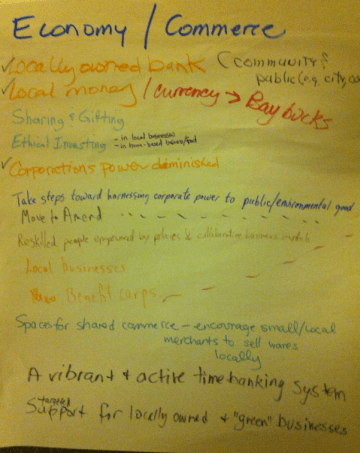 Economy / Commerce
✓Locally owned bank (community?
public (e.g. city, co
✓Local money / currency → Bay bucks
Sharing & Gifting
Ethical Investing - in local businesses
- in
✓Corporations power diminished
Take steps toward harnessing corporate power to public/environmental good
Move to Amend
Reskilled people empowered by policies & collaborative business models
Local businesses
Benefit corps.
Space for shared commerce - encourage small/local
merchants to sell wares
locally
A vibrant + active timebanking system
Support for locally owned + "green" businesses